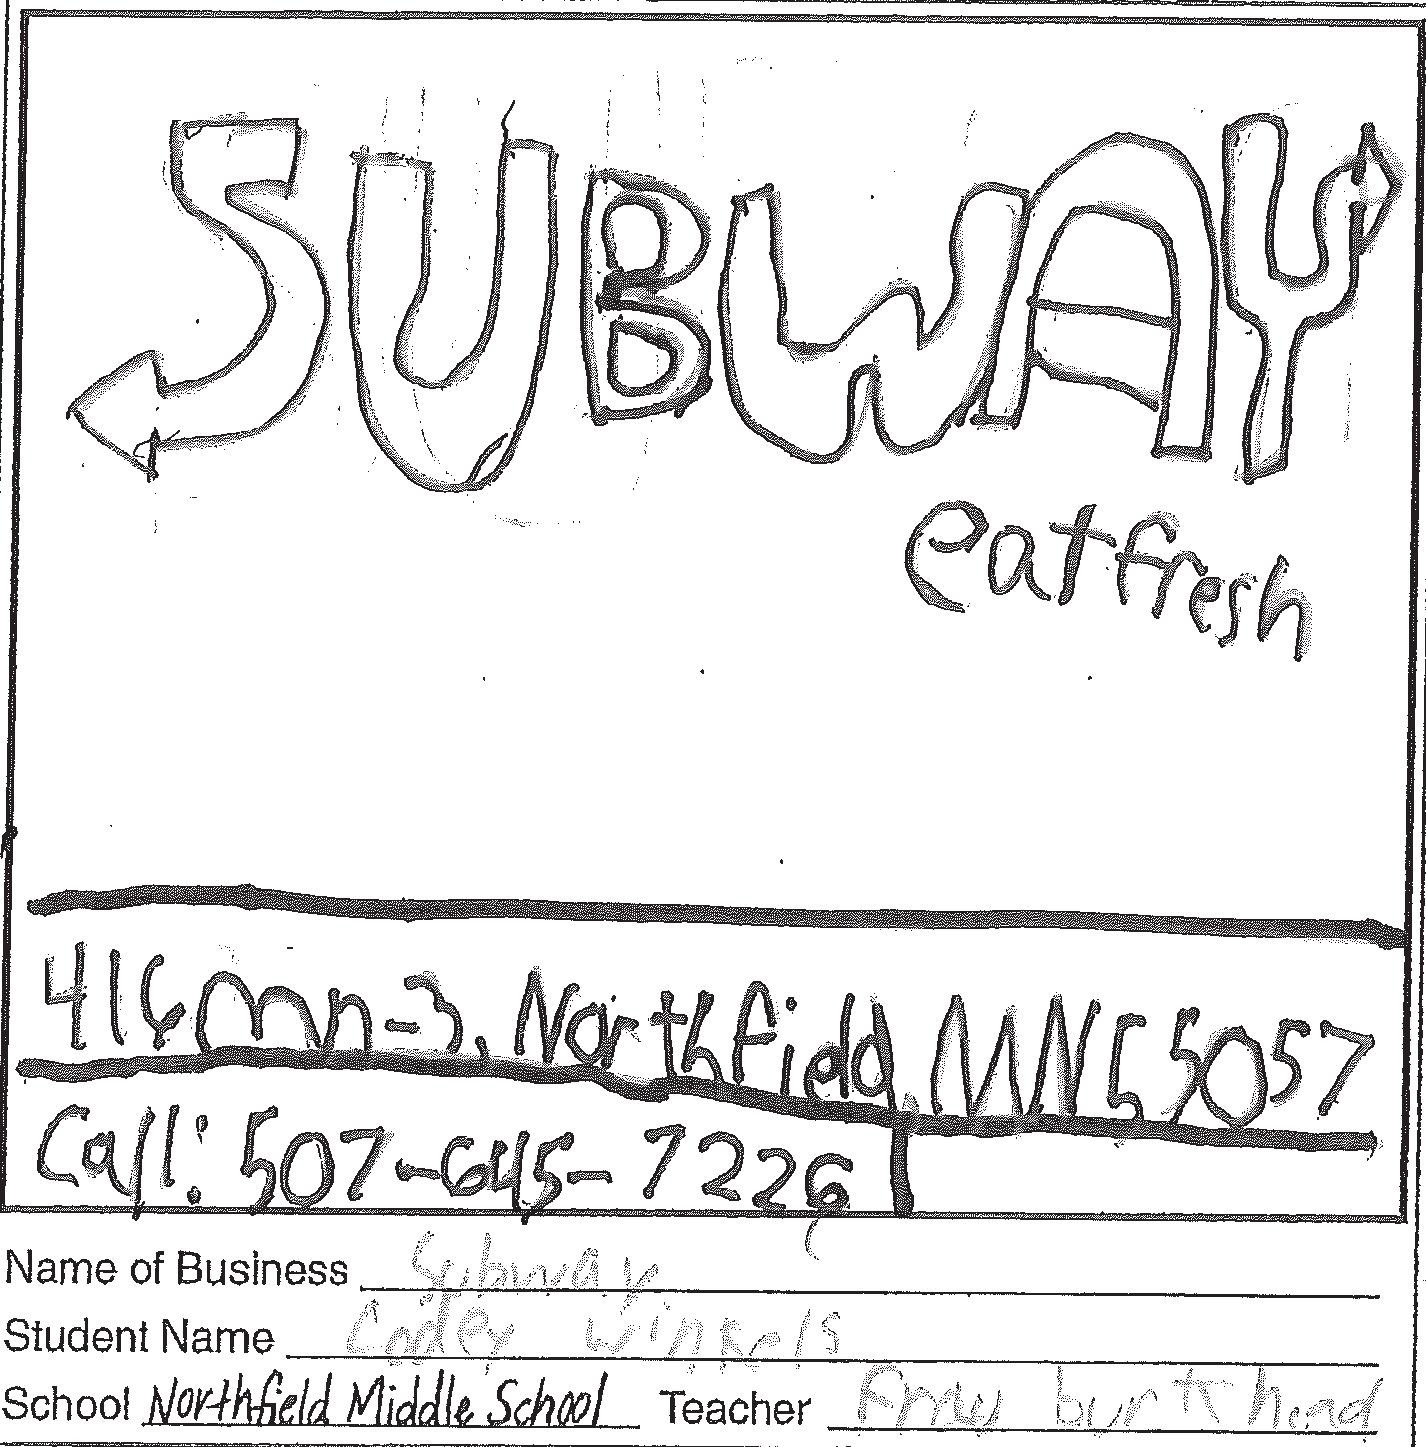 SUBWAY
eatfresh
416 mn-3, Northfield, MN 55057
Call: 507-645-7226
Name of Business Subway
Student Name winkels
School Northfield Middle School Teacher burkhead